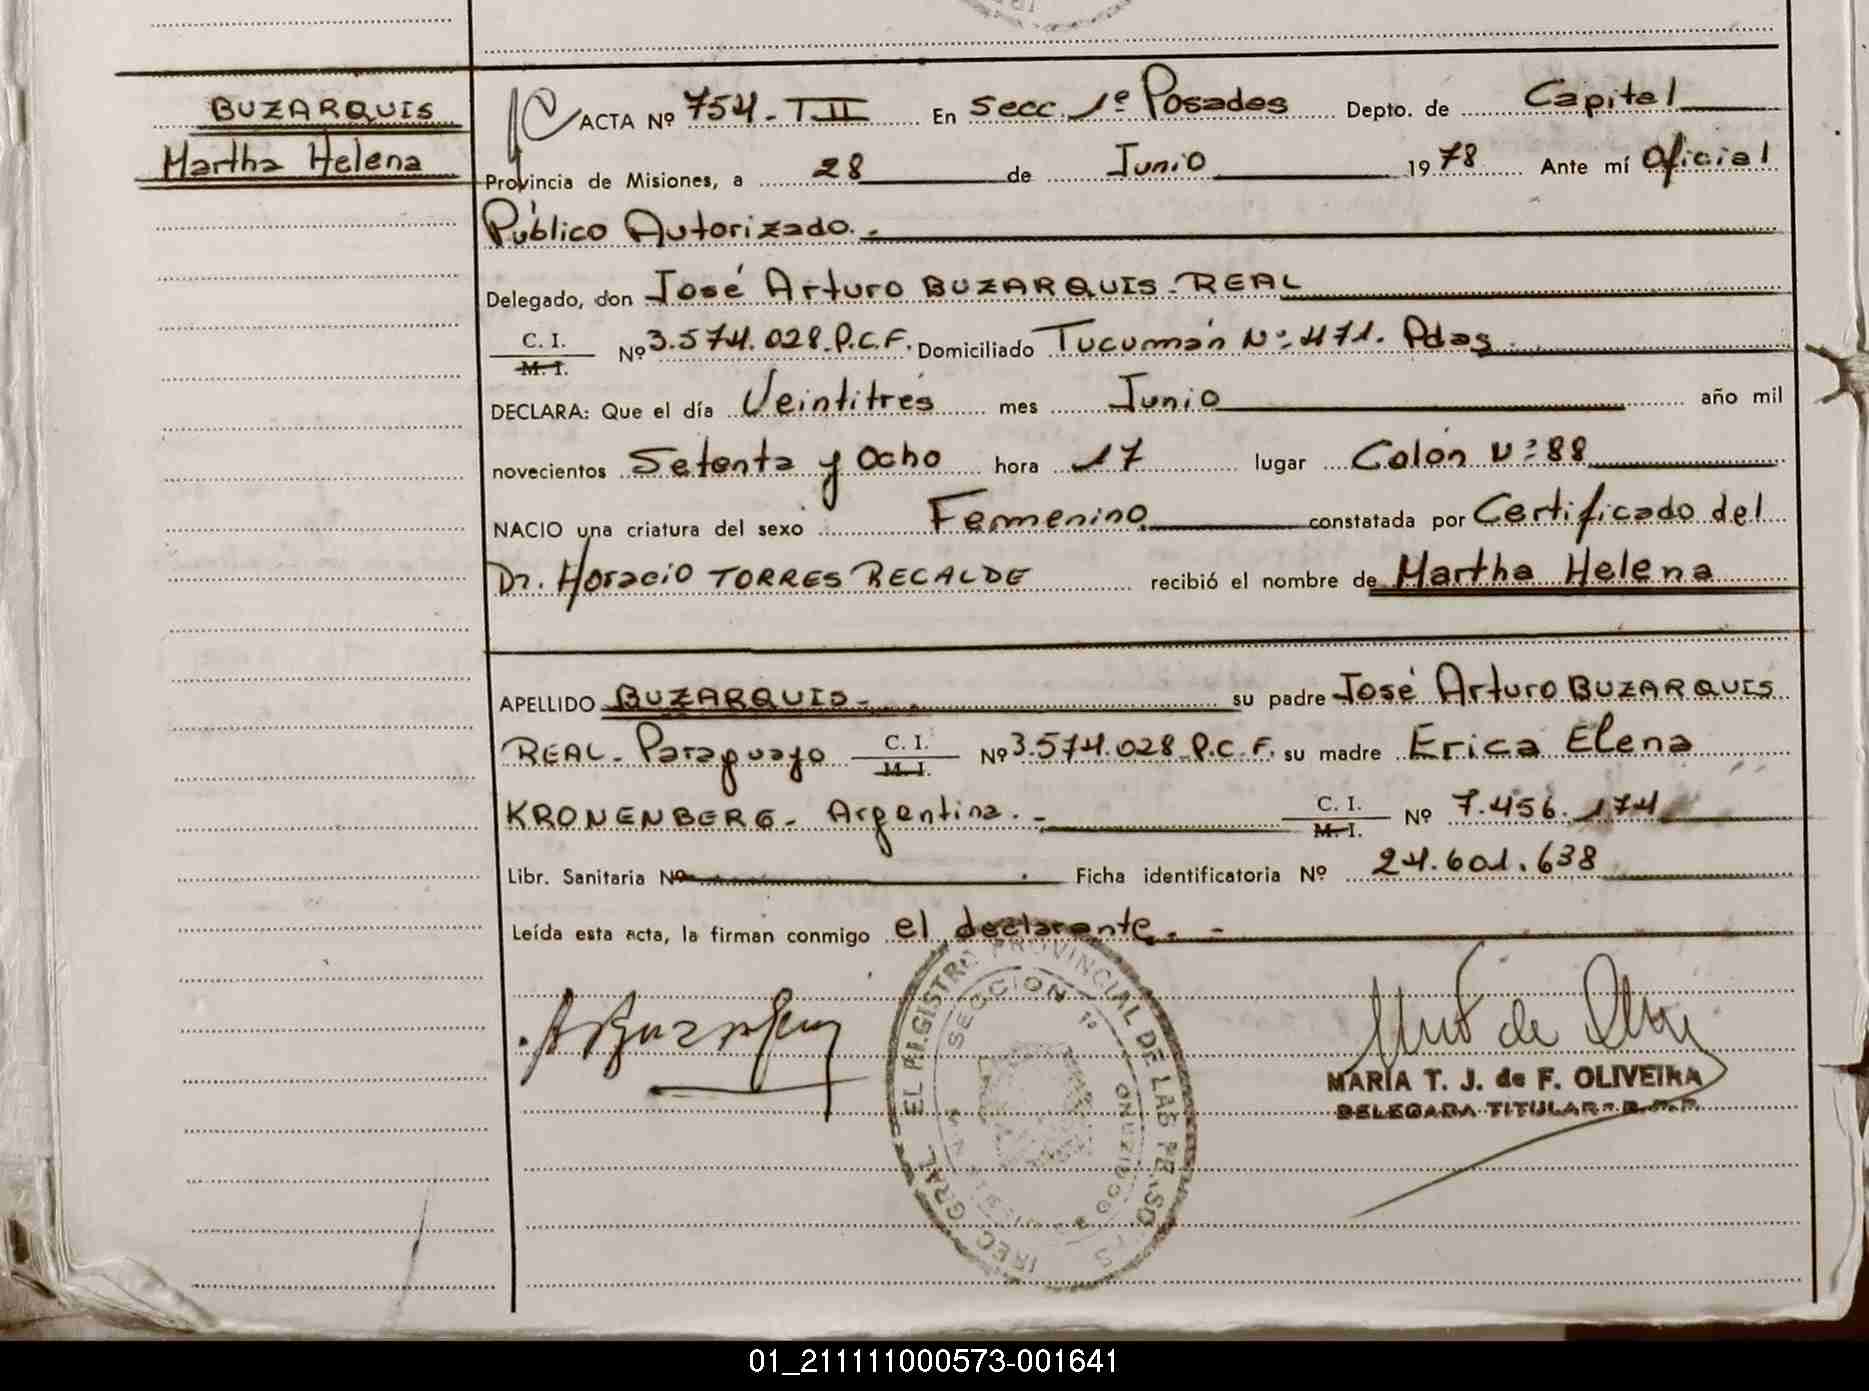 BUZARQUIS
Martha Helena
ACTA Nº 754 - T II En Secc. 1º Posadas Depto. de Capital
Provincia de Misiones, a 28 de Junio 1978 Ante mí Oficial
Público Autorizado.-
Delegado, don José Arturo BUZARQUIS - REAL
C. I.
M. I.
Nº 3.574.028 P.C.F. Domiciliado Tucumán Nº 471. Pdas.
DECLARA: Que el día Veintitrés mes Junio año mil
novecientos Setenta y Ocho hora 17 lugar Colón Nº 88
NACIO una criatura del sexo Femenino constatada por Certificado del
Dr. Horacio TORRES RECALDE recibió el nombre de Martha Helena
APELLIDO BUZARQUIS - su padre José Arturo BUZARQUIS
REAL - Paraguayo C. I. M. I. Nº 3.574.028 P.C.F. su madre Erica Elena
KRONENBERG - Argentina.- C. I. M. I. Nº 7.456.174
Libr. Sanitaria Nº Ficha identificatoria Nº 24.601.638
Leída esta acta, la firman conmigo el declarante. -
PROVINCIAL DE LAS
SECCION 1º
MARIA T. J. de F. OLIVEIRA
DELEGADA TITULAR
01_211111000573-001641